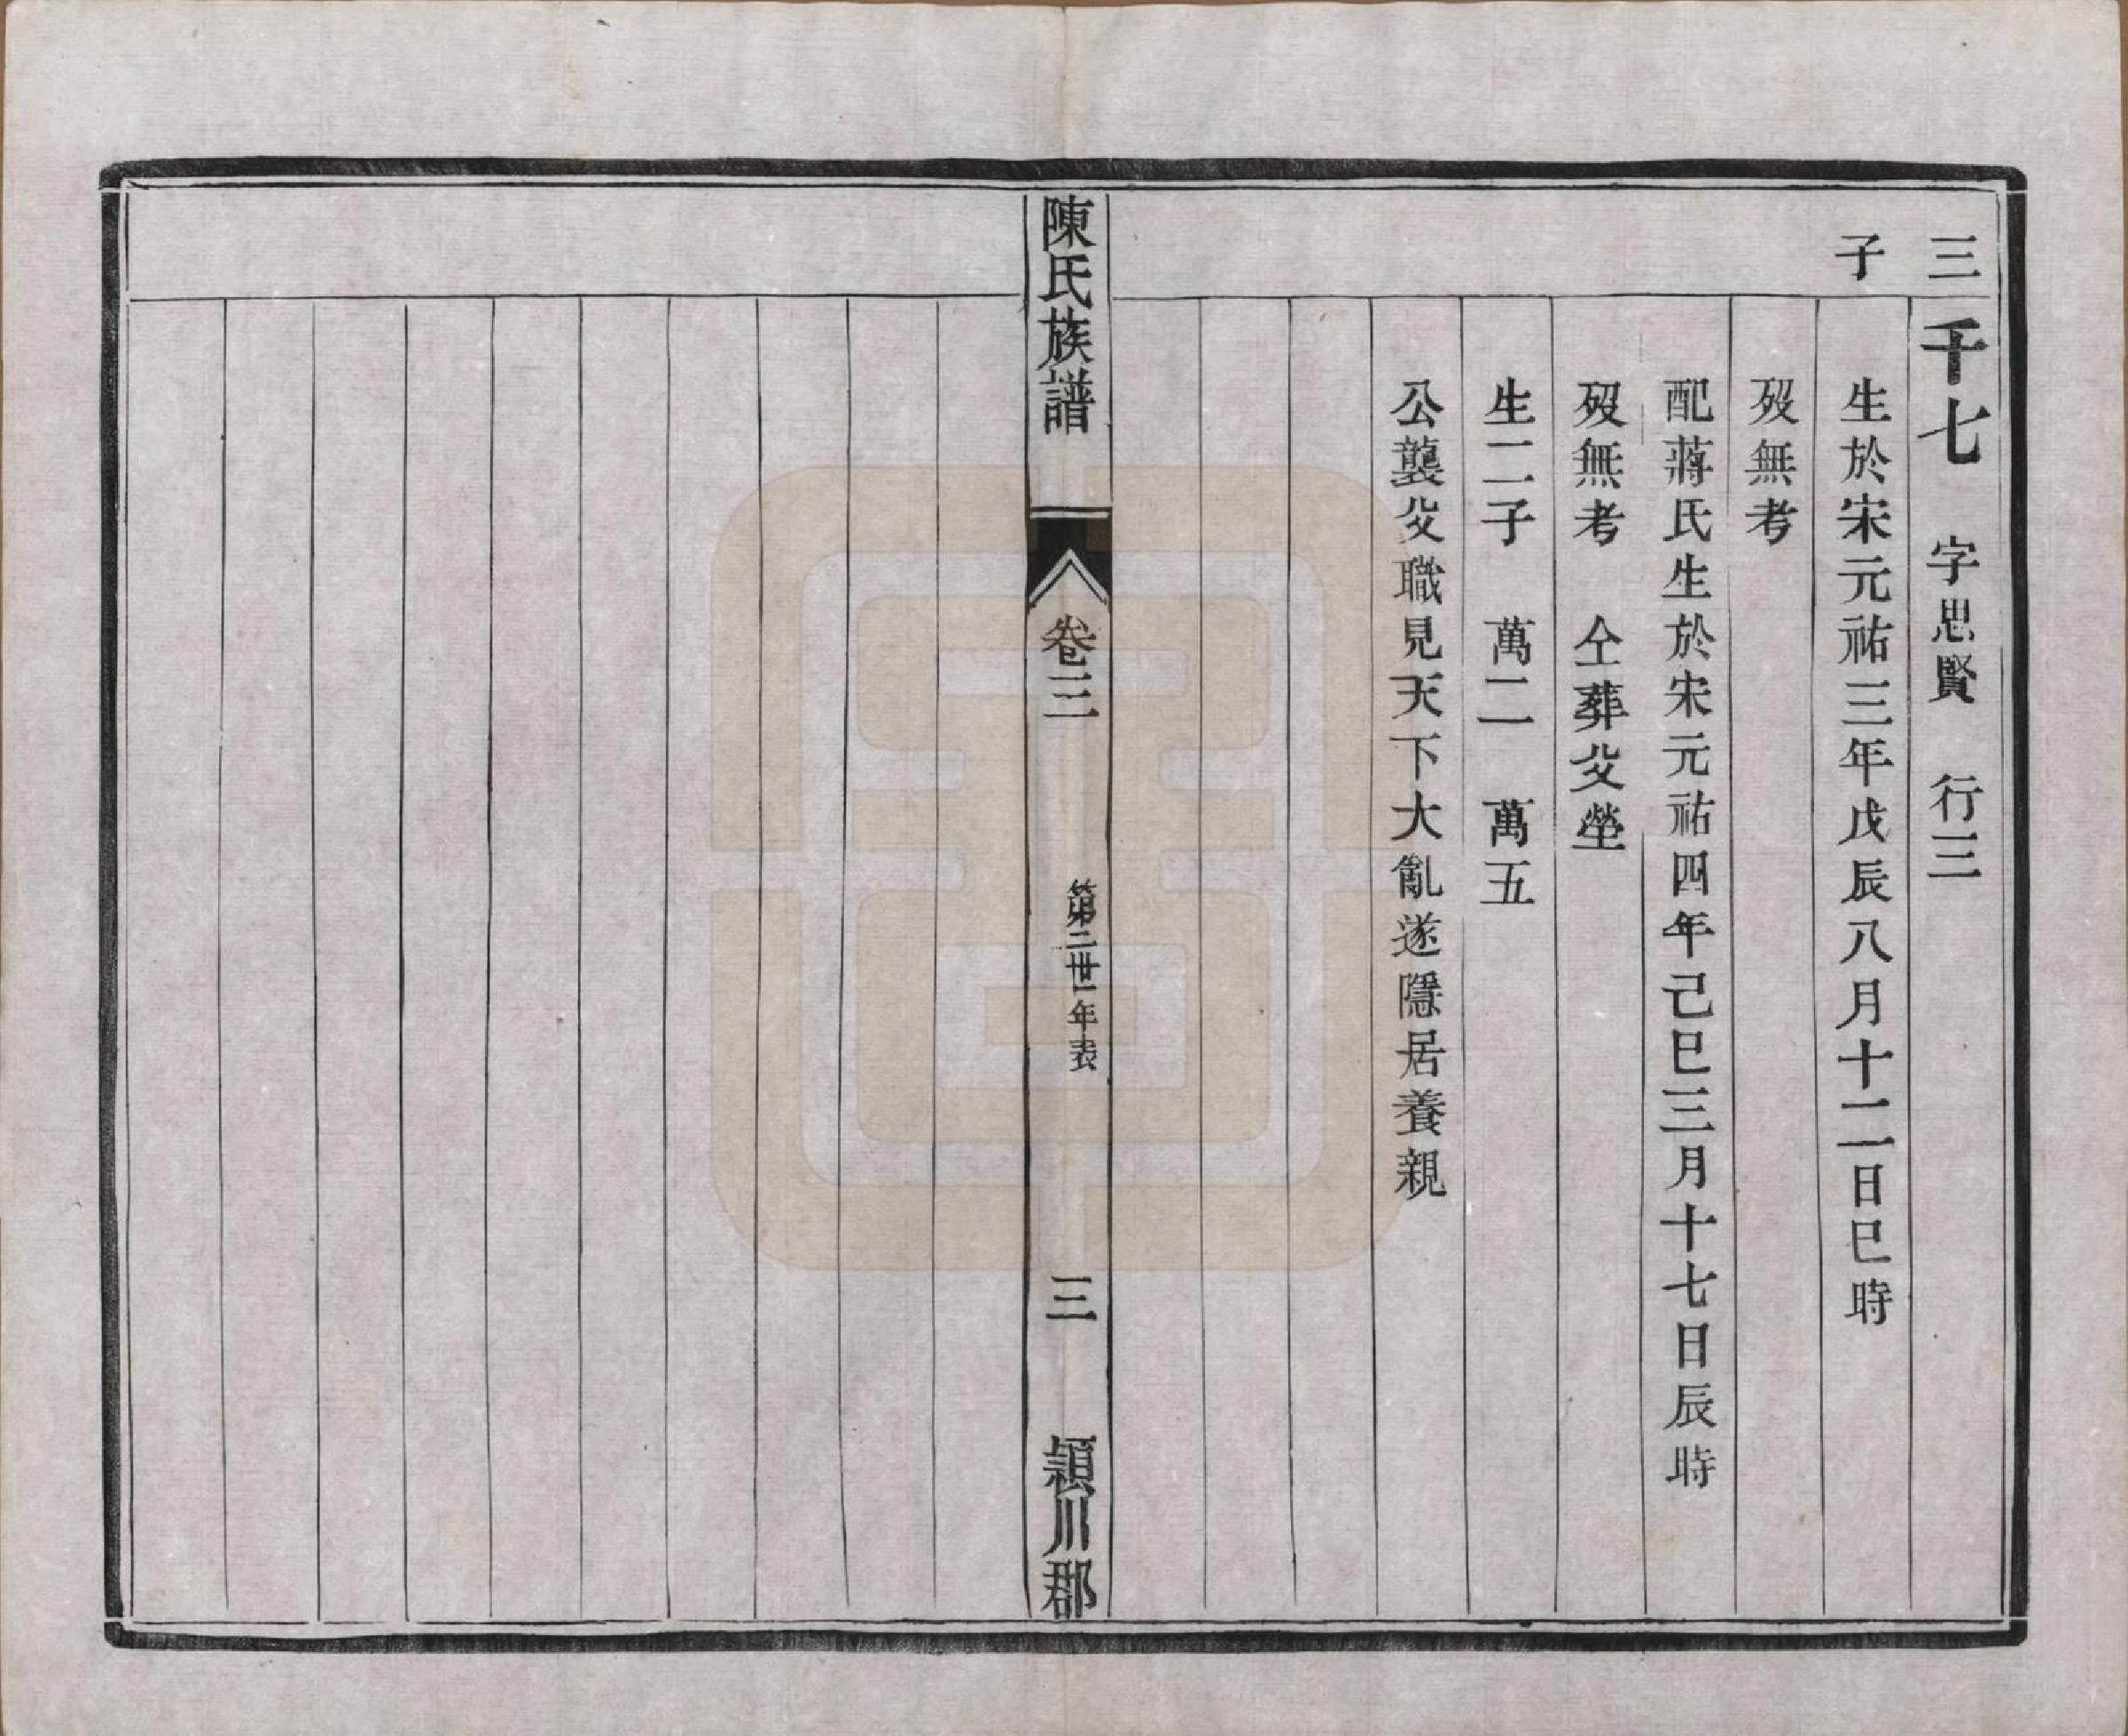 三子
千七　字思賢　行三
生於宋元祐三年戊辰八月十二日巳時
歿無考
配蔣氏生於宋元祐四年己巳三月十七日辰時
歿無考　仝葬父塋
生二子　萬二　萬五
公襲父職見天下大亂遂隱居養親
陳氏族譜　卷三　第二世年表　三　潁川郡